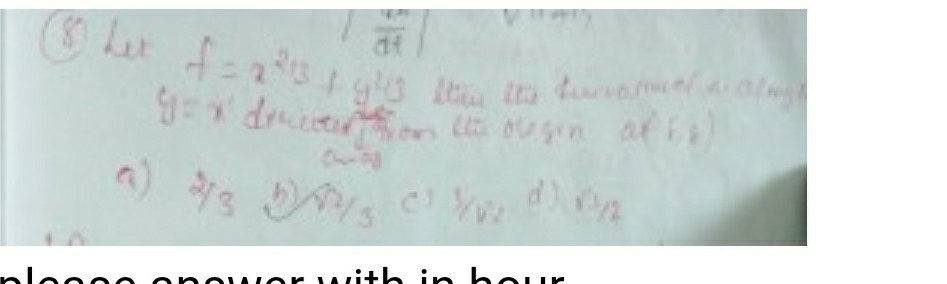 dt
⑧ Let f = x^2/3 + y^1/3 then the along
y = x directed from the origin at
away
a) 2/3 b) √2/3 c) 3/√2 d) √3/2
please answer with in hour